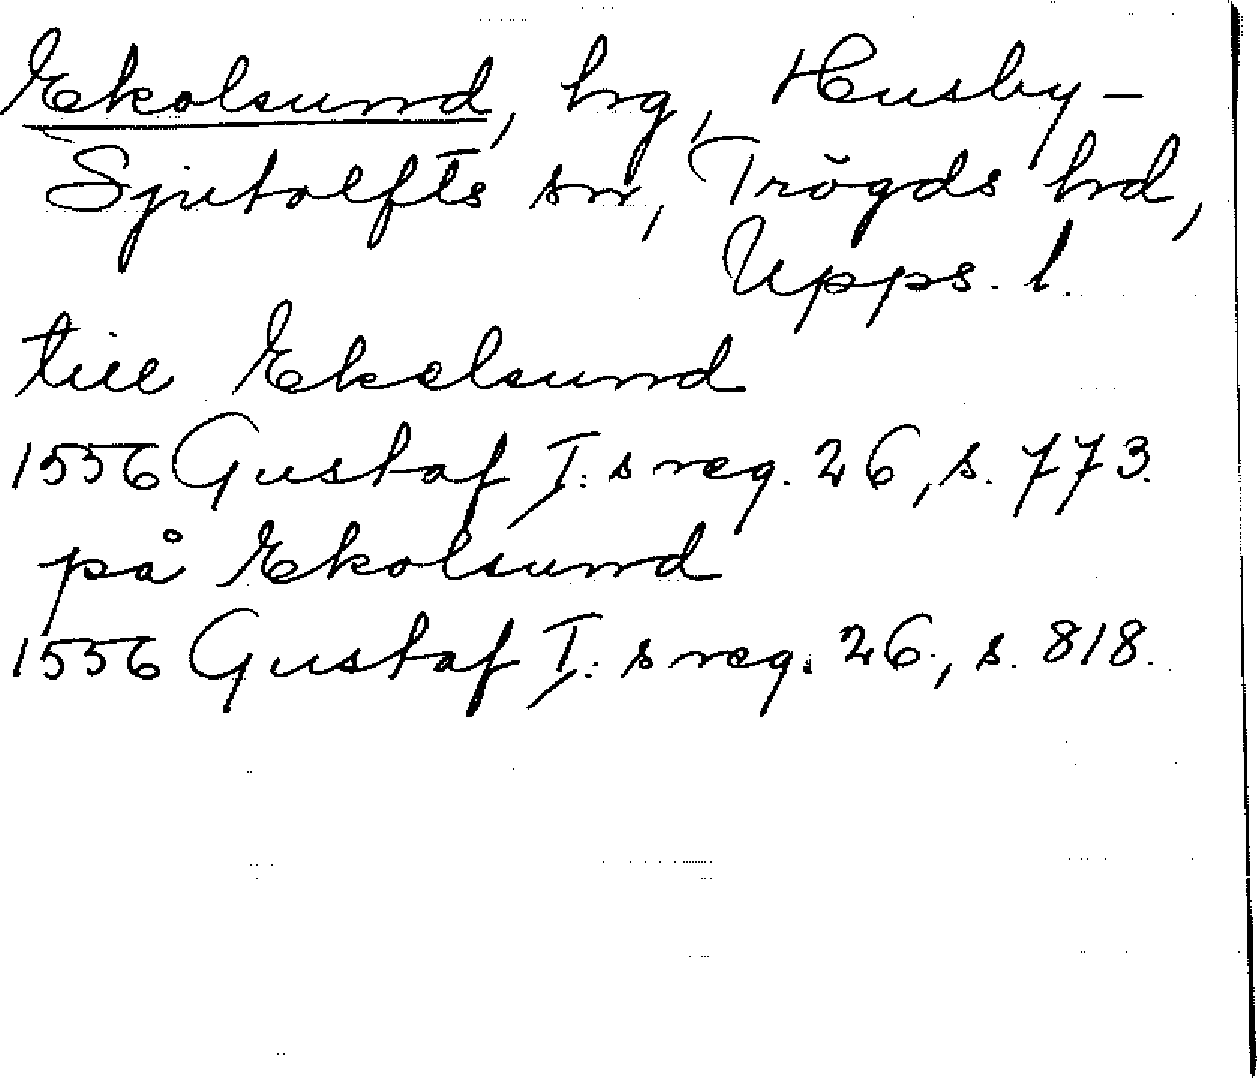 Ekolsund, hg, Husby-
Sjutolfts sn, Trögds hd,
Upps. l.
till Ekelsund
1556 Gustaf I:s reg. 26, s. 773.
på Ekolsund
1556 Gustaf I:s reg. 26, s. 818.